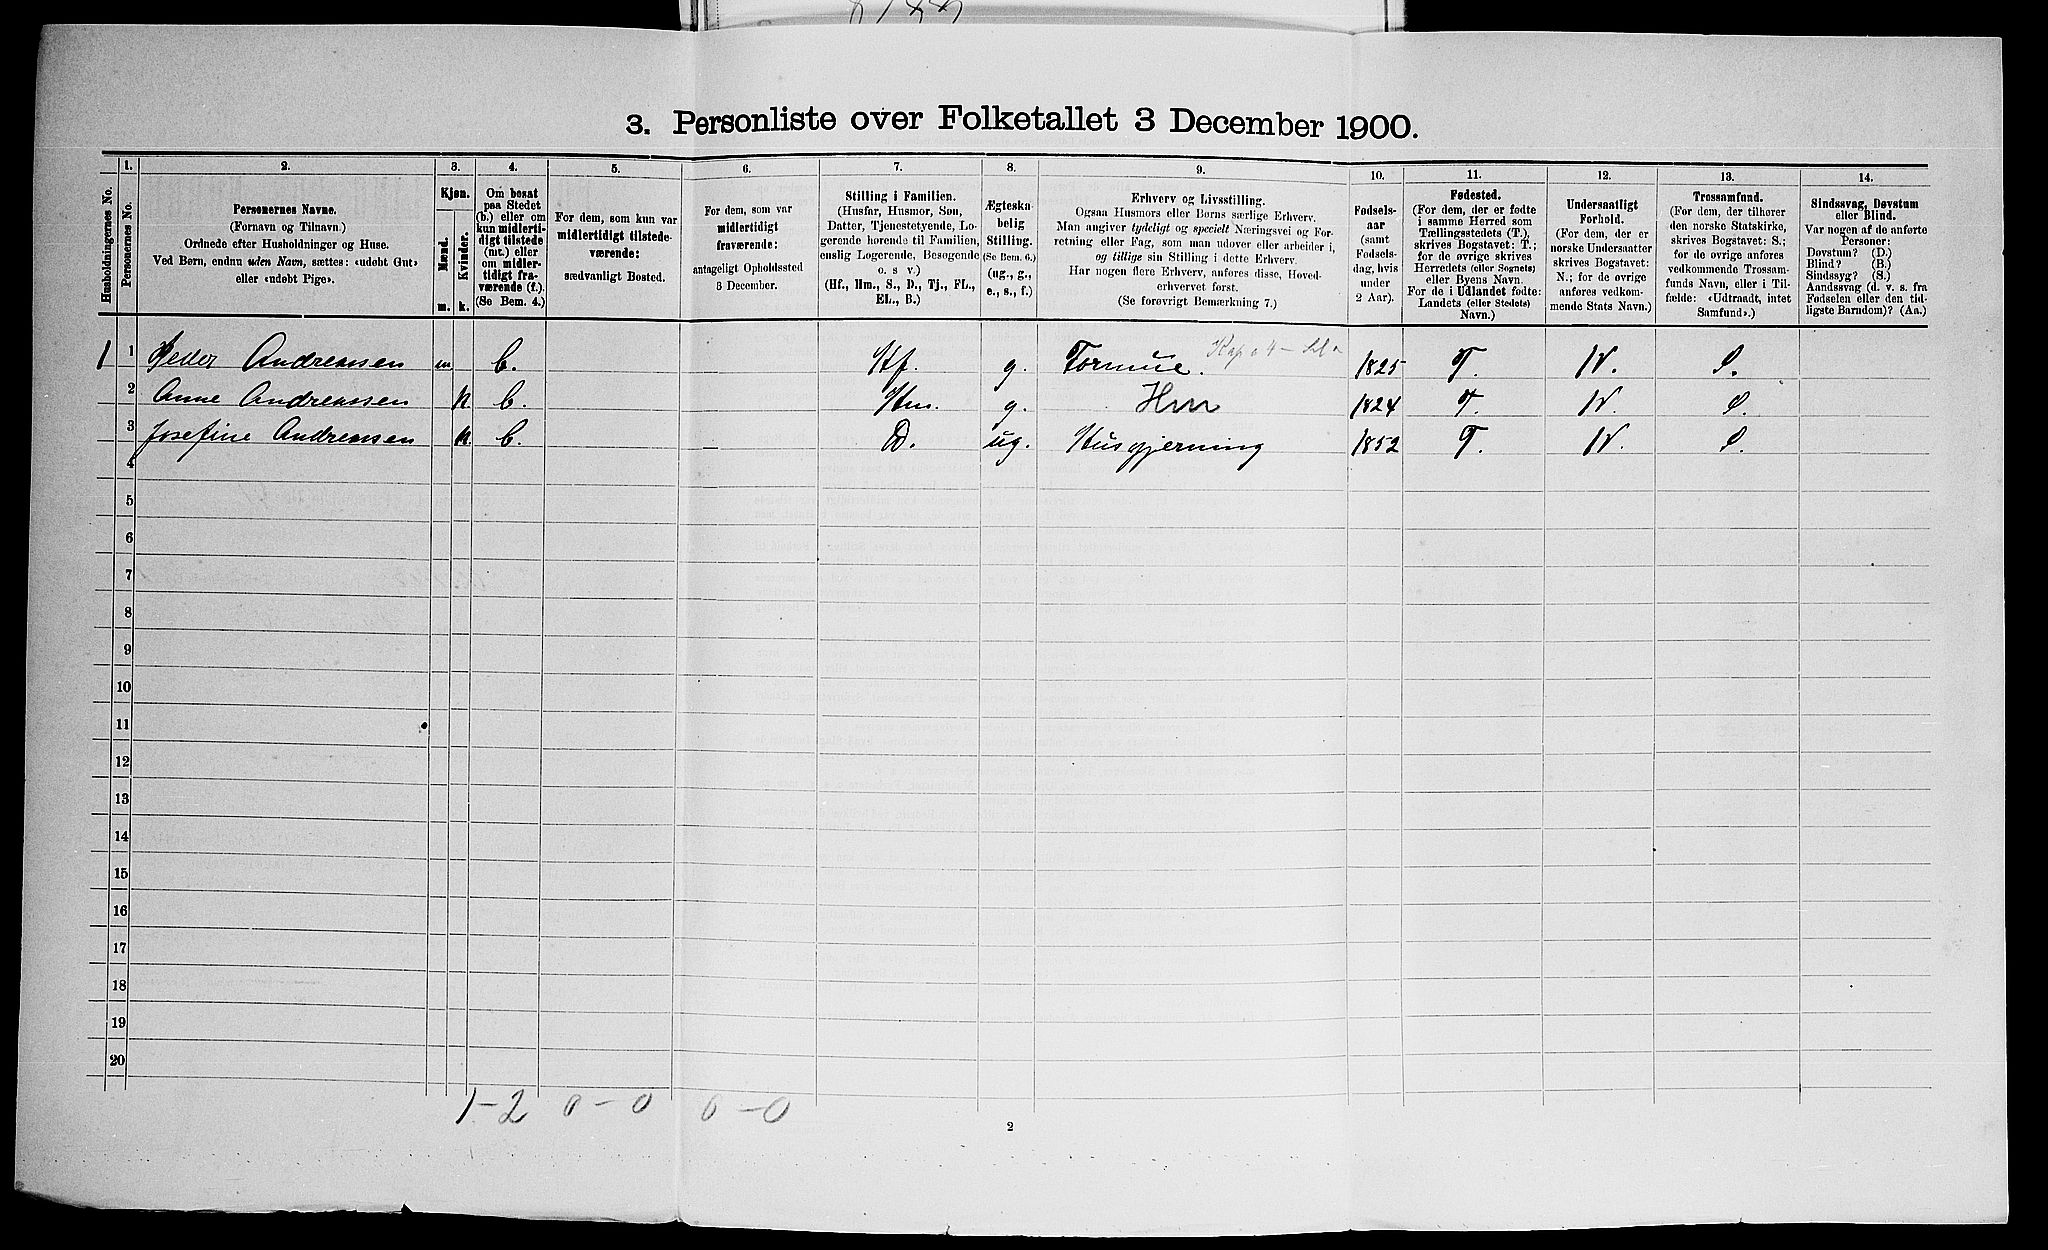 3. Personliste over Folketallet 3 December 1900.
Husholdningernes No.
1.
Personernes No.
2.
Personernes Navne.
(Fornavn og Tilnavn.)
Ordnede efter Husholdninger og Huse.
Ved Børn, endnu uden Navn, sættes: «udøbt Gut»
eller «udøbt Pige».
3.
Kjøn.
Mænd.
Kvinder.
m.
k.
4.
Om bosat
paa Stedet
(b.) eller om
kun midlerti-
digt tilstede
(mt.) eller
om midler-
tidigt fra-
værende (f.).
(Se Bem. 4.)
5.
For dem, som kun var
midlertidigt tilstede-
værende:
sædvanligt Bosted.
6.
For dem, som var
midlertidigt
fraværende:
antageligt Opholdssted
3 December.
7.
Stilling i Familien.
(Husfar, Husmor, Søn,
Datter, Tjenestetyende, Lo-
gerende hørende til Familien,
enslig Logerende, Besøgende
o. s v.)
(Hf., Hm., S., D., Tj., FL.,
EL., B.)
8.
Ægteska-
belig
Stilling.
(Se Bem. 6.)
(ug., g.,
e., s., f.)
9.
Erhverv og Livsstilling.
Ogsaa Husmors eller Børns særlige Erhverv.
Man angiver tydeligt og specielt Næringsvei og For-
retning eller Fag, som man udover eller arbeider i,
og tillige sin Stilling i dette Erhverv.
Har nogen flere Erhverv, anføres disse, Hoved-
erhvervet først.
(Se forøvrigt Bemærkning 7.)
10.
Fødsels-
aar
(samt
Fødsels-
dag, hvis
under
2 Aar).
11.
Fødested.
(For dem, der er fødte
i samme Herred som
Tællingsstedets (T.),
skrives Bogstavet: T.;
for de øvrige skrives
Herredets (eller Sognets)
eller Byens Navn.
For de i Udlandet fødte:
Landets (eller Stedets)
Navn.)
12.
Undersaatligt
Forhold.
(For dem, der er
norske Undersaatter
skrives Bogstavet:
N.; for de øvrige
anføres vedkom-
mende Stats Navn.)
13.
Trossamfund.
(For dem, der tilhører
den norske Statskirke,
skrives Bogstavet: S.;
for de øvrige anføres
vedkommende Trossam-
funds Navn, eller i Til-
fælde: «Udtraadt, intet
Samfund».)
14.
Sindssvag, Døvstum
eller Blind.
Var nogen af de anførte
Personer:
Døvstum? (D.)
Blind? (B.)
Sindssyg? (S.)
Aandssvag (d. v. s. fra
Fødselen eller den tid-
ligste Barndom)? (Aa.)
1 1 Peder Andreassen m b. Hf. g. Formue. 1825 T. N. S.
2 Anne Andreassen k b. Hm. g. Hm 1824 T. N. S.
3 Josefine Andreasen k b. D. ug. Husgjerning 1852 T. N. S.
4
5
6
7
8
9
10
11
12
13
14
15
16
17
18
19
20
1-2 0-0 0-0
2